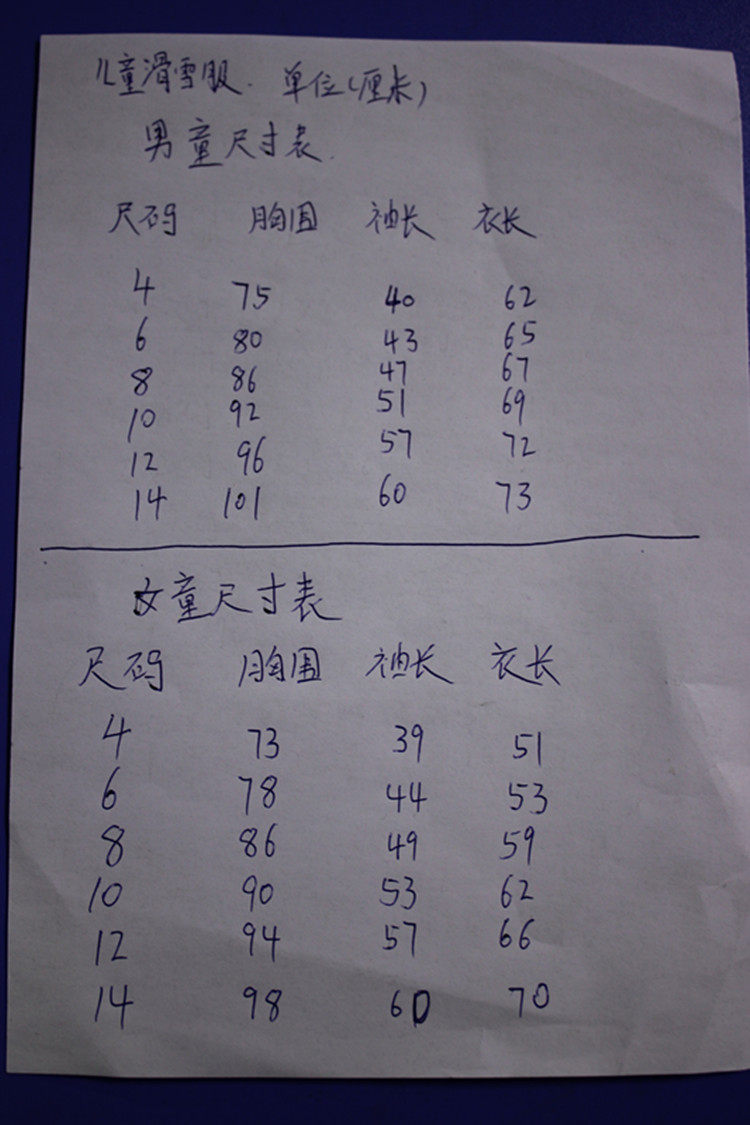 儿童滑雪服. 单位(厘米)
男童尺寸表.
尺码 胸围 袖长 衣长
4 75 40 62
6 80 43 65
8 86 47 67
10 92 51 69
12 96 57 72
14 101 60 73
女童尺寸表
尺码 胸围 袖长 衣长
4 73 39 51
6 78 44 53
8 86 49 59
10 90 53 62
12 94 57 66
14 98 60 70